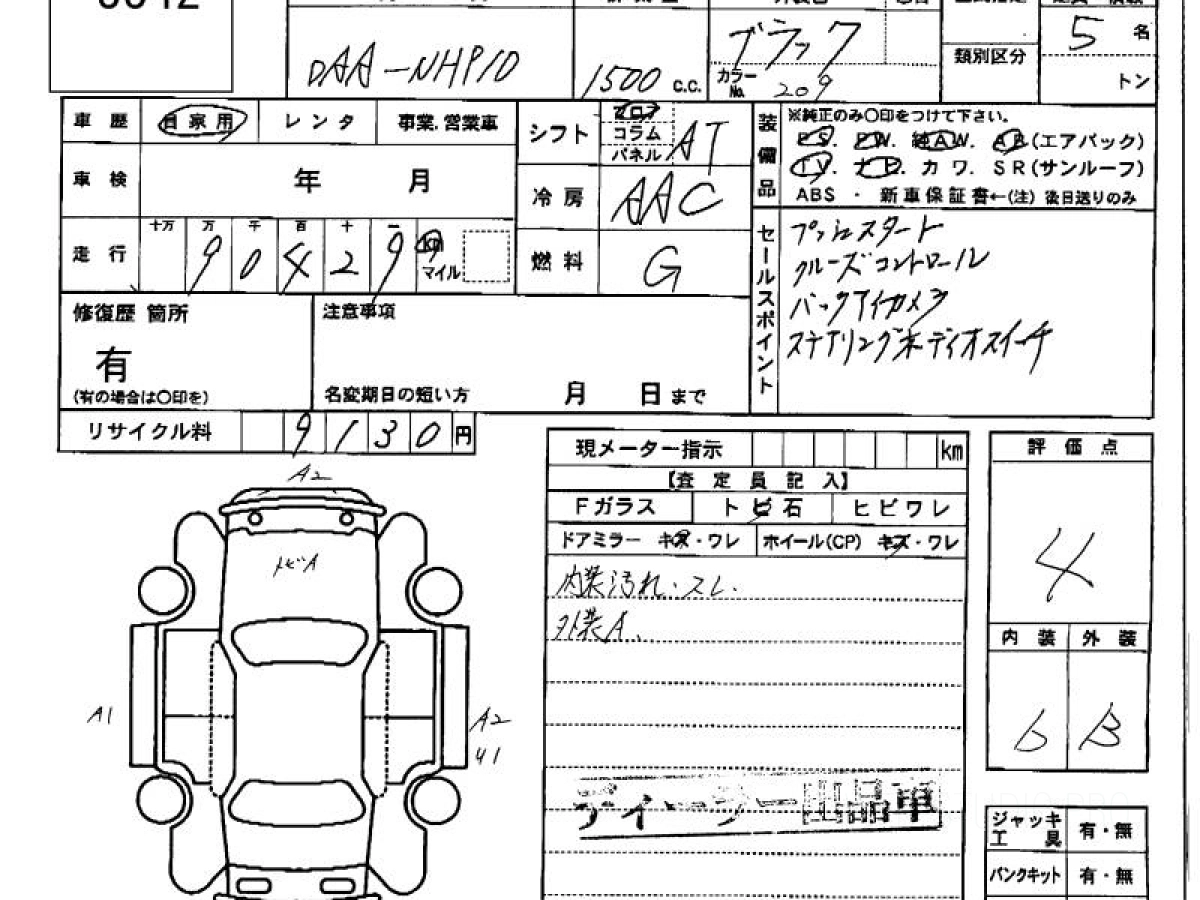 DAA-NHP10
1500 c.c.
ブラック
カラーNo. 209
類別区分
5 名
トン
車歴 自家用 レンタ 事業.営業車
車検 年 月
走行 十万 万 千 百 十 一
9 0 4 2 9 km マイル
シフト フロア コラム パネル AT
冷房 AAC
燃料 G
装備品
※純正のみ○印をつけて下さい。
PS. PW. 純AW. AB(エアバック)
TV. ナビ. カワ. SR(サンルーフ)
ABS ・ 新車保証書←(注) 後日送りのみ
セールスポイント
プッシュスタート
クルーズコントロール
バックアイカメラ
ステアリングオーディオスイッチ
修復歴 箇所
有
(有の場合は○印を)
注意事項
名変期日の短い方 月 日まで
リサイクル料 9130円
現メーター指示 km
【査定員記入】
Fガラス トビ石 ヒビワレ
ドアミラー キズ・ワレ ホイール(CP) キズ・ワレ
内装汚れ・スレ.
外装A.
ディーラー出品車
評価点
4
内装 外装
6 B
ジャッキ工具 有・無
パンクキット 有・無
A2
トビA
A1
A2
U1